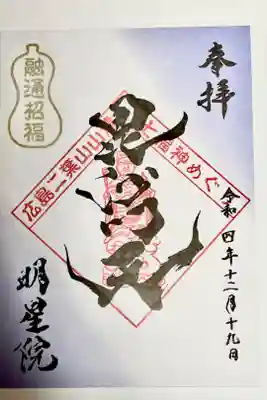 奉拝
七福神めぐ
広島二葉山三
毘沙門天
令和四年十二月十九日
融通招福
明星院